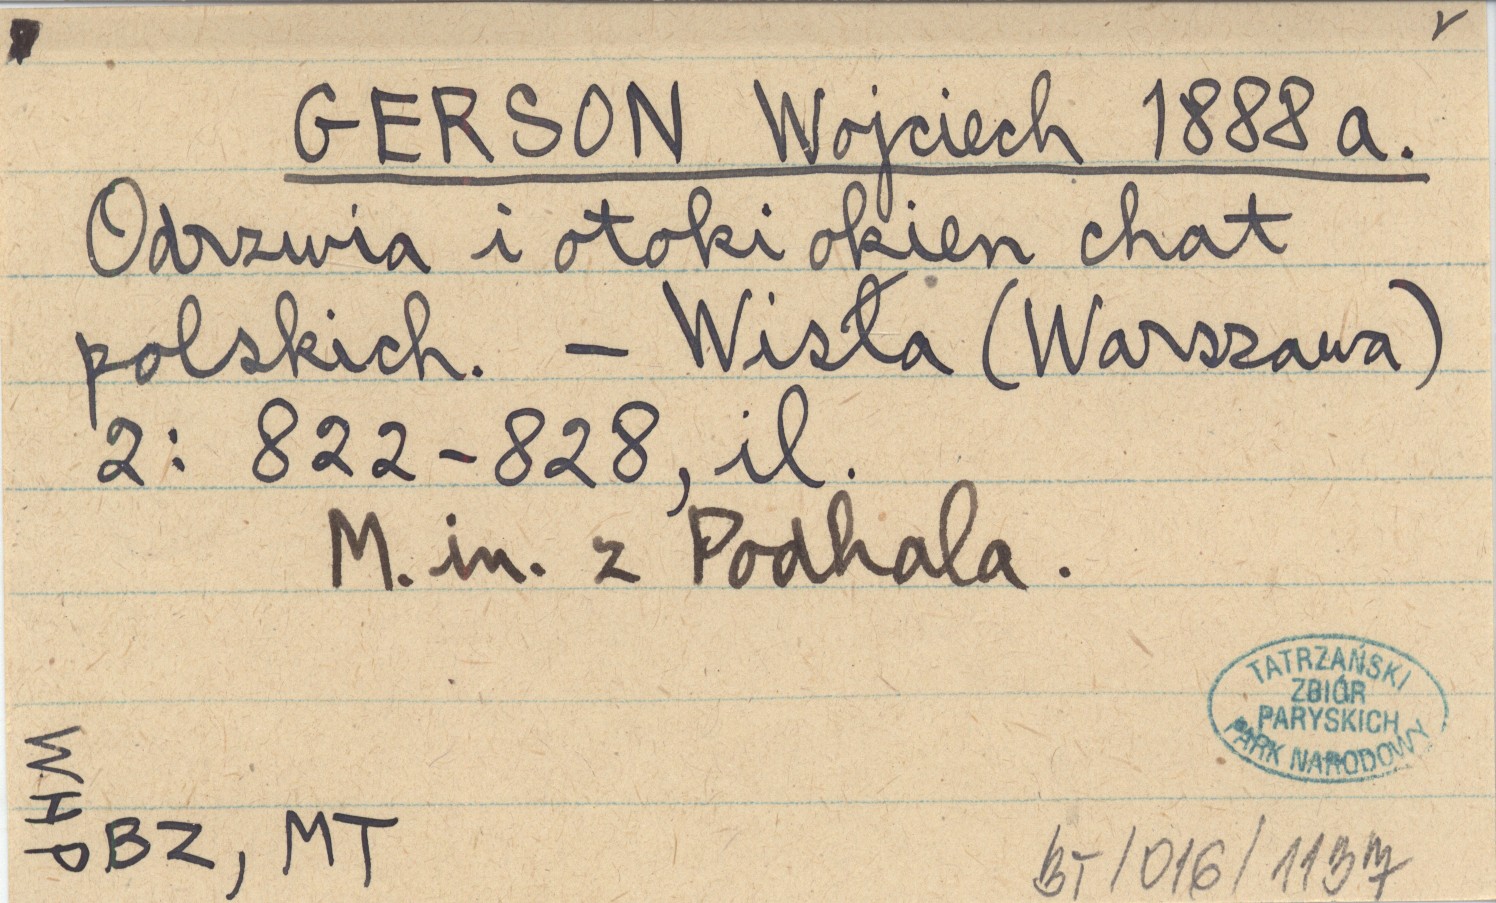 GERSON Wojciech 1888 a.
Odrzwia i otoki okien chat
polskich. – Wisła (Warszawa)
2: 822-828, il.
M. in. z Podhala.
TATRZAŃSKI
ZBIÓR
PARYSKICH
PARK NARODOWY
WHP
BZ, MT
BT/016/1137